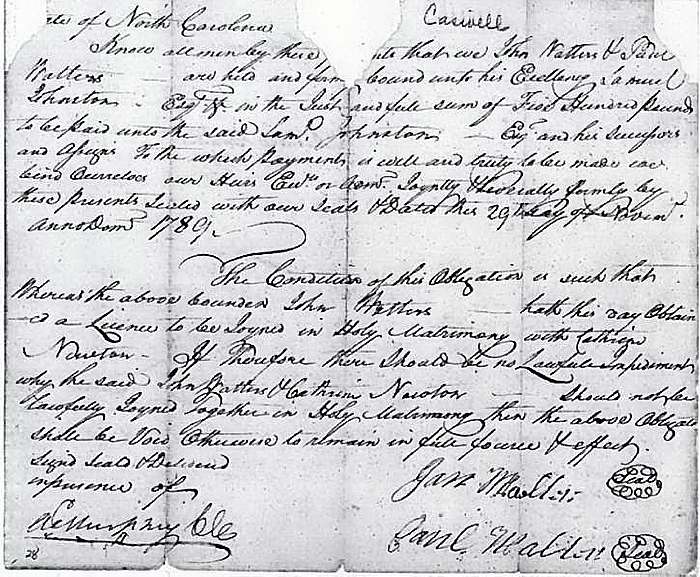 te of North Carolina Caswell
Know all men by these ents that we John Watters & Paul
Watters — are held and firm bound unto his Excellency Samuel
Johnston Esqr. &c. in the Just and full sum of Five Hundred pounds
to be paid unto the said Saml. Johnston — Esqr. and his successors
and assigns To the which payments is well and truly to be made we
bind Ourselves our Heirs Exrs. or Admr. Joyntly & severally firmly by
these presents Sealed with our Seals & Dated this 29th day of Novemr.
Anno Dom 1789
The Condition of this Obligation is such that
Whereas the above bounden John Watters — hath this day Obtain
ed a Licence to be Joyned in Holy Matrimony with Cathrine
Newton — If Therefore there Should be no Lawfull impediment
why the said John Watters & Cathrine Newton — should not be
lawfully Joyned Together in Holy Matrimony then the above Obligati
shall be Void Otherwise to remain in full fource & effect.
Signd Seald & Delivered
in presence of
John Watters Seal
Paul Watters Seal
28